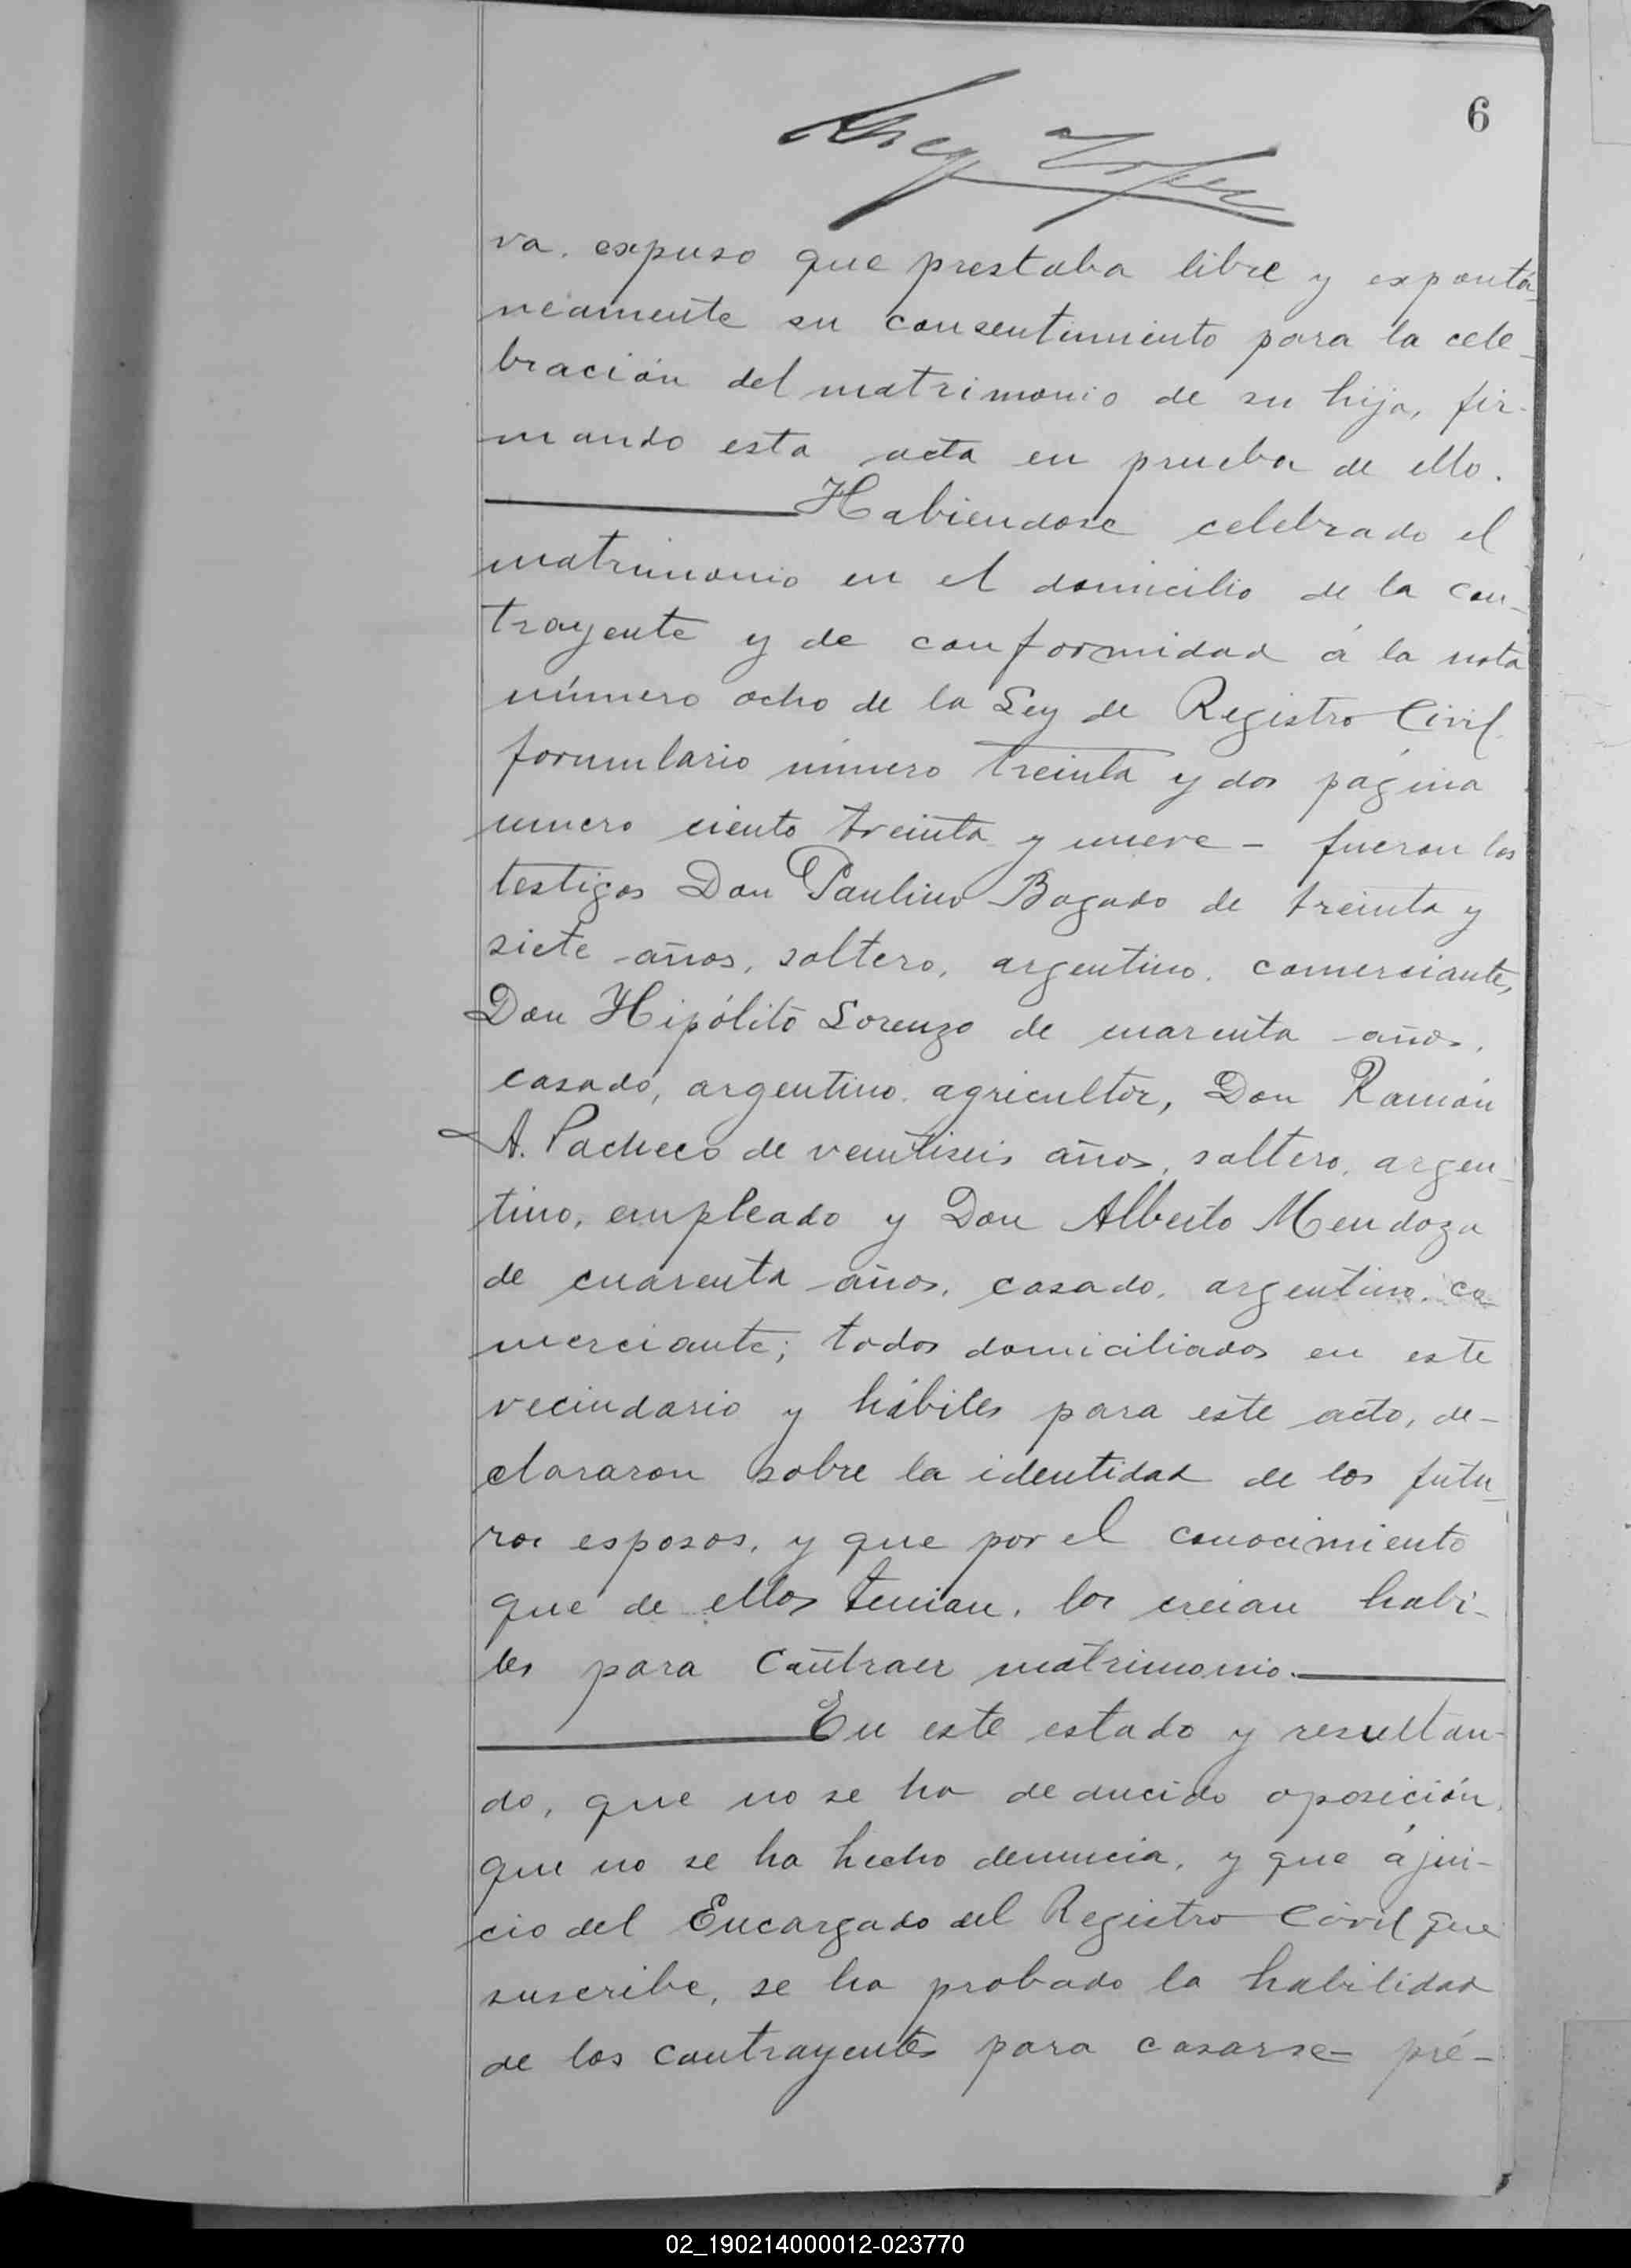 6
va. expuso que prestaba libre y expontá-
neamente su consentimiento para la cele-
bración del matrimonio de su hija, fir-
mando esta acta en prueba de ello.
Habiendose celebrado el
matrimonio en el domicilio de la con-
trayente y de conformidad á la nota
número ocho de la Ley de Registro Civil
formulario número treinta y dos página
numero ciento treinta y nueve - fueron los
testigos Don Paulino Bogado de treinta y
siete años, soltero, argentino, comerciante,
Don Hipólito Lorenzo de cuarenta años,
casado, argentino, agricultor, Don Ramón
A. Pacheco de ventiseis años, soltero, argen-
tino, empleado y Don Alberto Mendoza
de cuarenta años, casado, argentino, co-
merciante; todos domiciliados en este
vecindario y hábiles para este acto, de-
clararon sobre la identidad de los futu-
ros esposos, y que por el conocimiento
que de ellos tenian, los creian habi-
les para contraer matrimonio.
En este estado y resultan-
do, que no se ha deducido oposición,
que no se ha hecho denuncia, y que á jui-
cio del Encargado del Registro Civil que
suscribe, se ha probado la habilidad
de los contrayentes para casarse= pré-
02_190214000012-023770